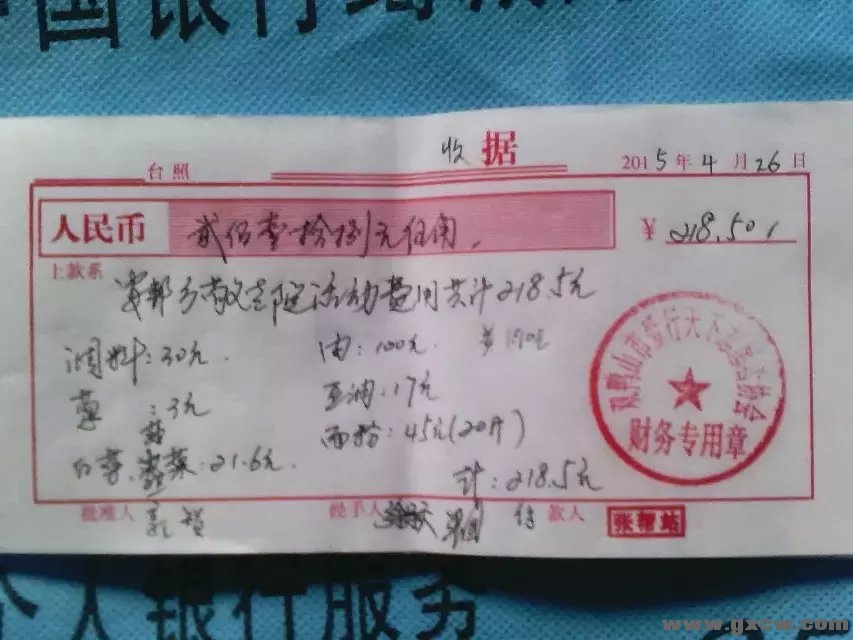 国银行
收 据
2015年4月26日
台照
人民币 贰佰壹拾捌元伍角
¥ 218.50
上款系
安邦乡敬老院活动费用共计218.5元
调料:30元 肉:100元
葱:3元 豆油:17元
面粉:45元(20斤)
白菜、:21.6元
计:218.5元
双鸭山市 行天下志愿者协会
财务专用章
批准人 经手人 付款人
个人银行服务
www.gxcw.com